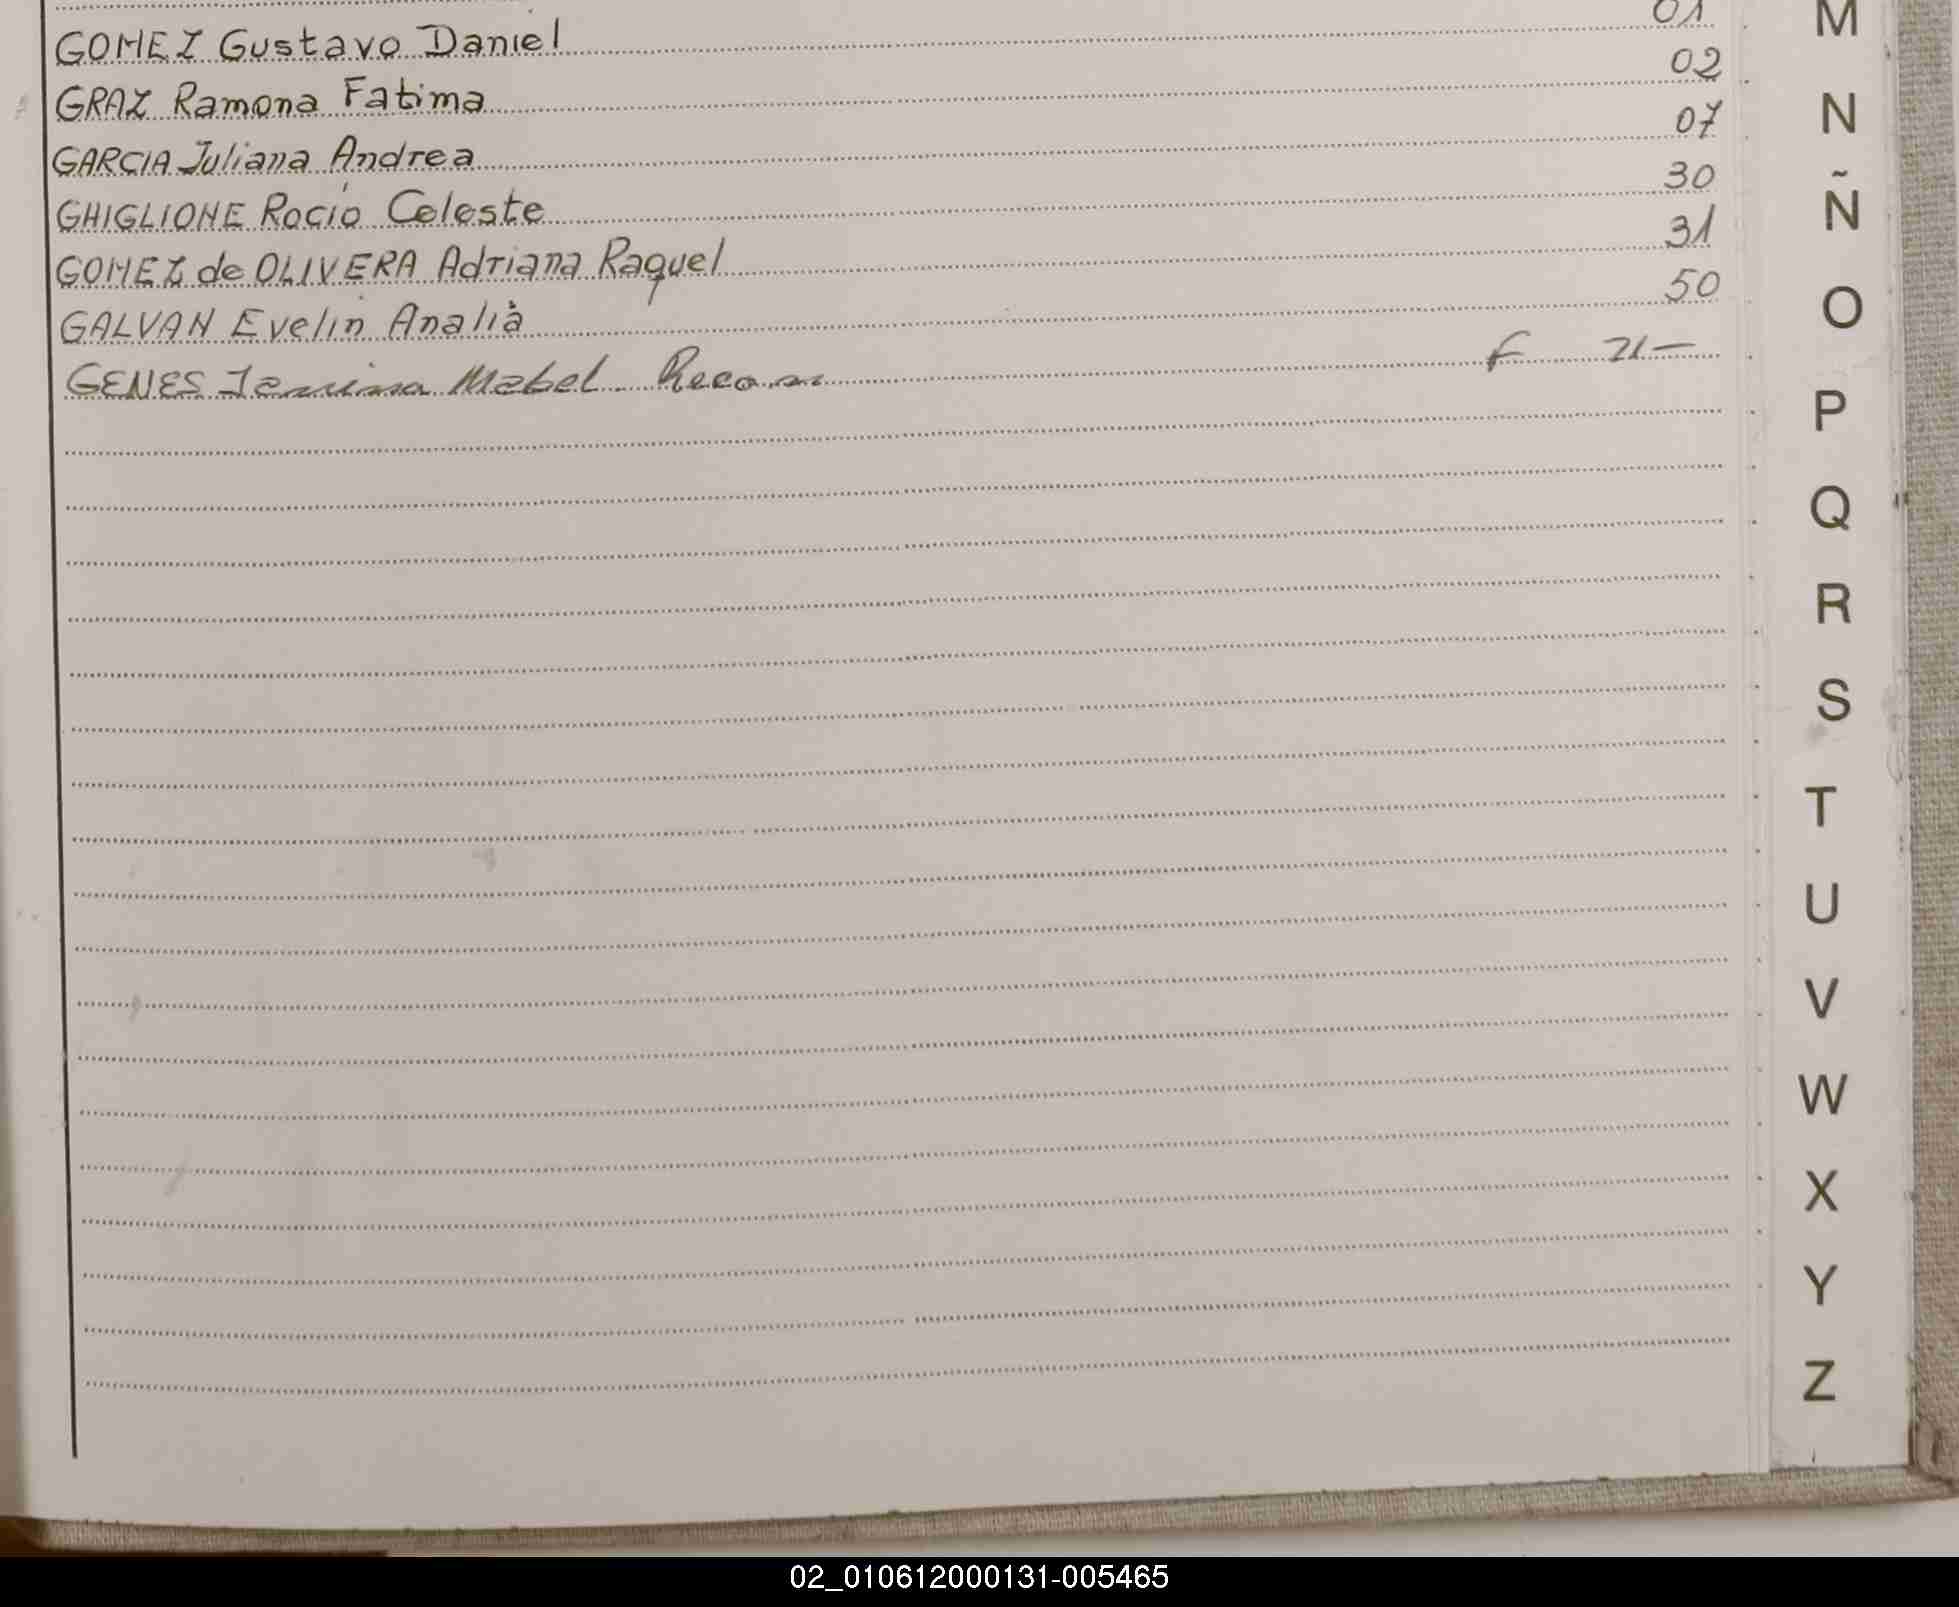 GOMEZ Gustavo Daniel 01
GRAZ Ramona Fatima 02
GARCIA Juliana Andrea 07
GHIGLIONE Rocío Celeste 30
GOMEZ de OLIVERA Adriana Raquel 31
GALVAN Evelin Analía 50
GENES Mabel F 21-
M
N
Ñ
O
P
Q
R
S
T
U
V
W
X
Y
Z
02_010612000131-005465